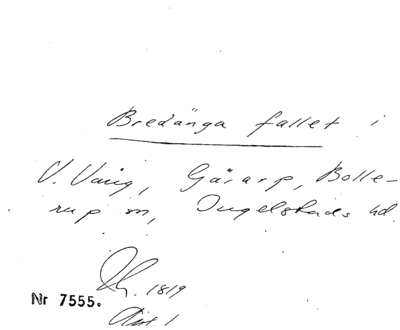 Bredänga fallet i
V. Vång, Gärarp, Bolle-
rup sn, Ingelstads hd.
1819
Nr 7555.